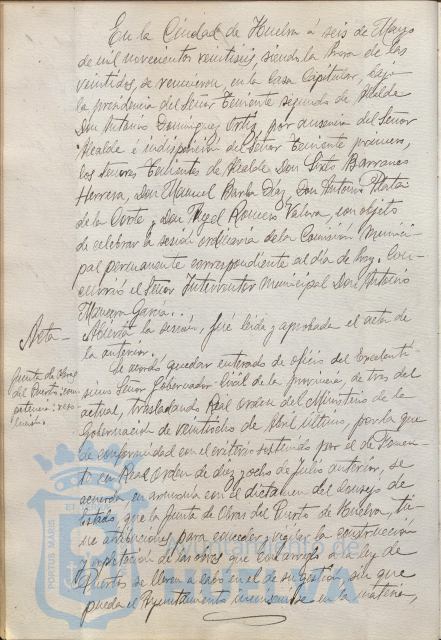 En la Ciudad de Huelva á seis de Mayo
de mil novecientos veintiseis, siendo la hora de las
veintidos, se reunieron, en la Casa Capitular, bajo
la presidencia del Señor Teniente segundo de Alcalde
Don Antonio Dominguez Ortiz, por ausencia del Señor
Alcalde é indisposición del Señor Teniente primero,
los Señores Tenientes de Alcalde Don Sixto Barranco
Herrera, Don Manuel Barba Diaz, Don Antonio Mata
de la Corte y Don Miguel Romero Valera, con objeto
de celebrar la sesión ordinaria de la Comisión Munici-
pal permanente correspondiente al día de hoy. Con-
currió el Señor Interventor Municipal Don Antonio
García.
Acta - Abierta la sesión, fué leida y aprobada el acta de
la anterior.
Junta de Obras
del Puerto: com-
petencia: reso-
lución.
Se acordó quedar enterado de oficio del Excelentí-
simo Señor Gobernador Civil de la provincia, de tres del
actual, trasladando Real Orden del Ministerio de la
Gobernacion de veintiocho de Abril último, por la que
de conformidad con el criterio sostenido por el de Fomen-
to en Real Orden de diez y ocho de Julio anterior, se
acuerda en armonía con el dictamen del Consejo de
Estado, que la Junta de Obras del Puerto de Huelva, tie-
ne atribuciones para conceder y vigilar la construcción
y explotación de las obras que con arreglo a la ley de
Puertos se lleven a cabo en el de su gestión, sin que
pueda el Ayuntamiento inmiscuirse en la materia,
PORTUS MARIS
Ayuntamiento de
HUELVA